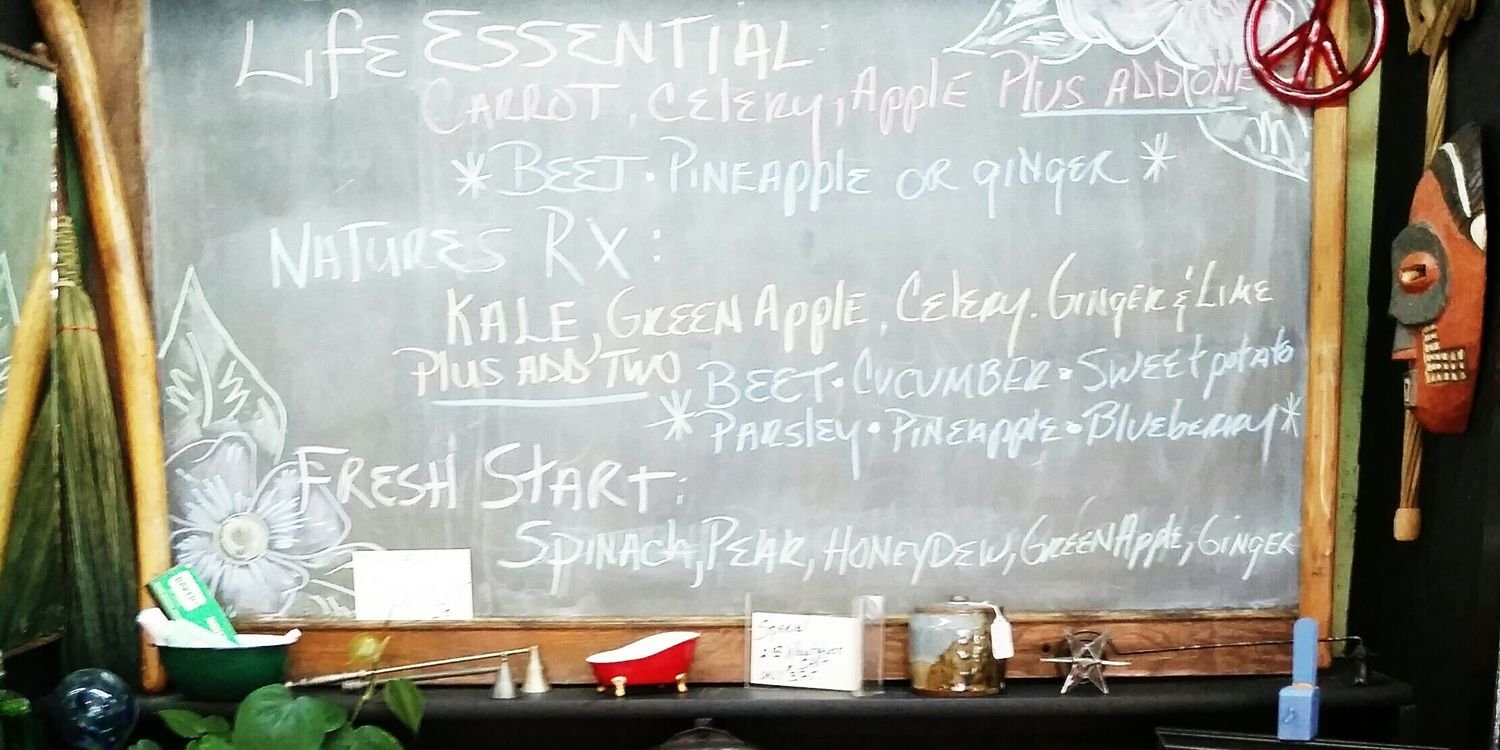 Life Essential:
Carrot, Celery, Apple Plus add one
* Beet • Pineapple or ginger *
Natures Rx:
Kale, Green Apple, Celery, Ginger & Lime
Plus add two Beet • Cucumber • Sweet potato
* Parsley • Pineapple • Blueberry *
Fresh Start:
Spinach, Pear, Honeydew, Green Apple, Ginger